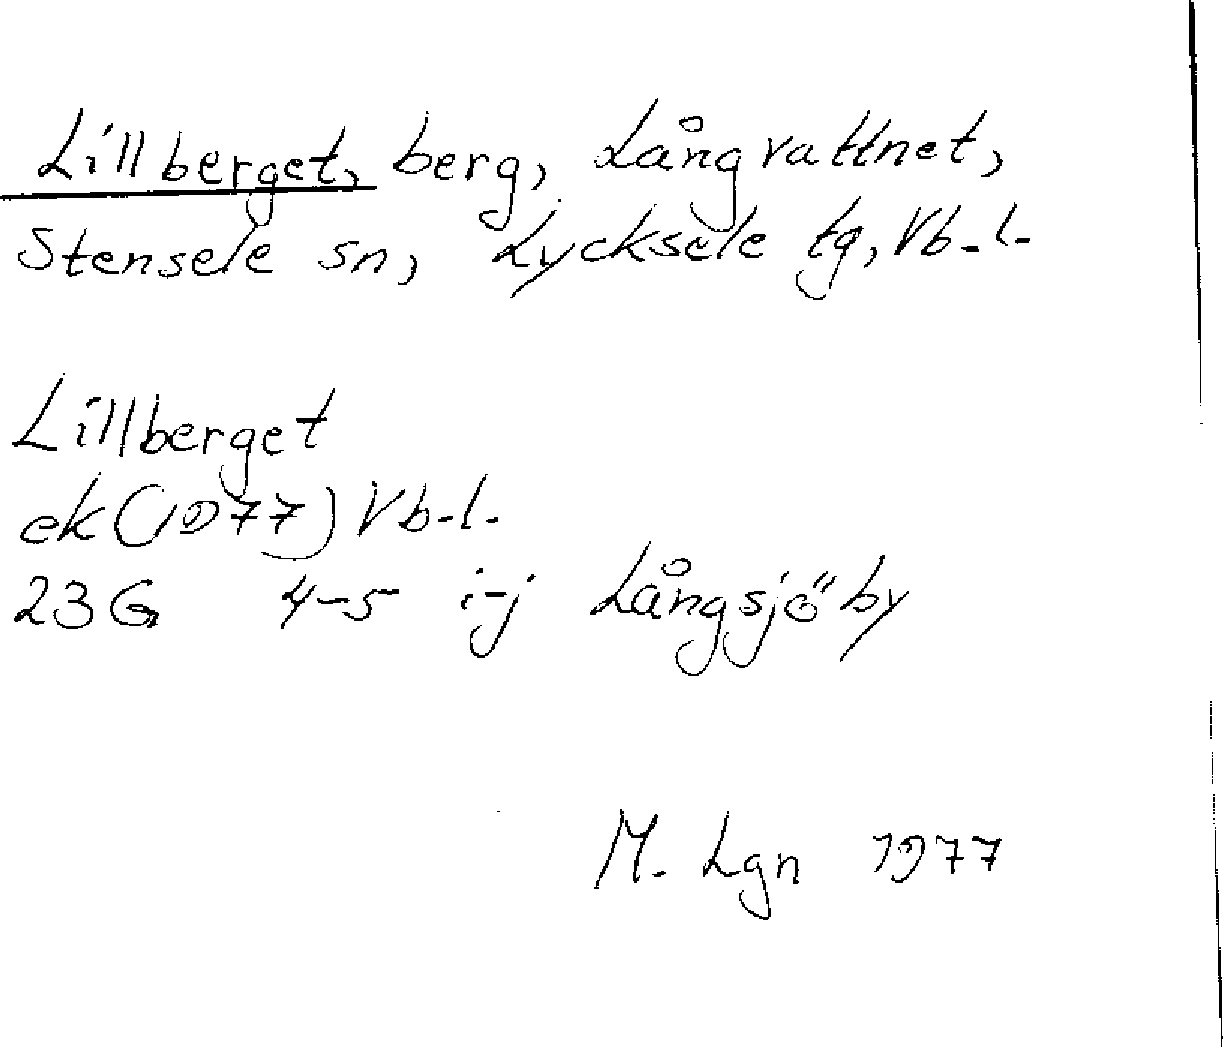 Lillberget, berg, Långvattnet,
Stensele sn, Lycksele tg, Vb-l-
Lillberget
ek (1977) Vb-l-
23G 4-5 i-j Långsjöby
M. Lgn 1977